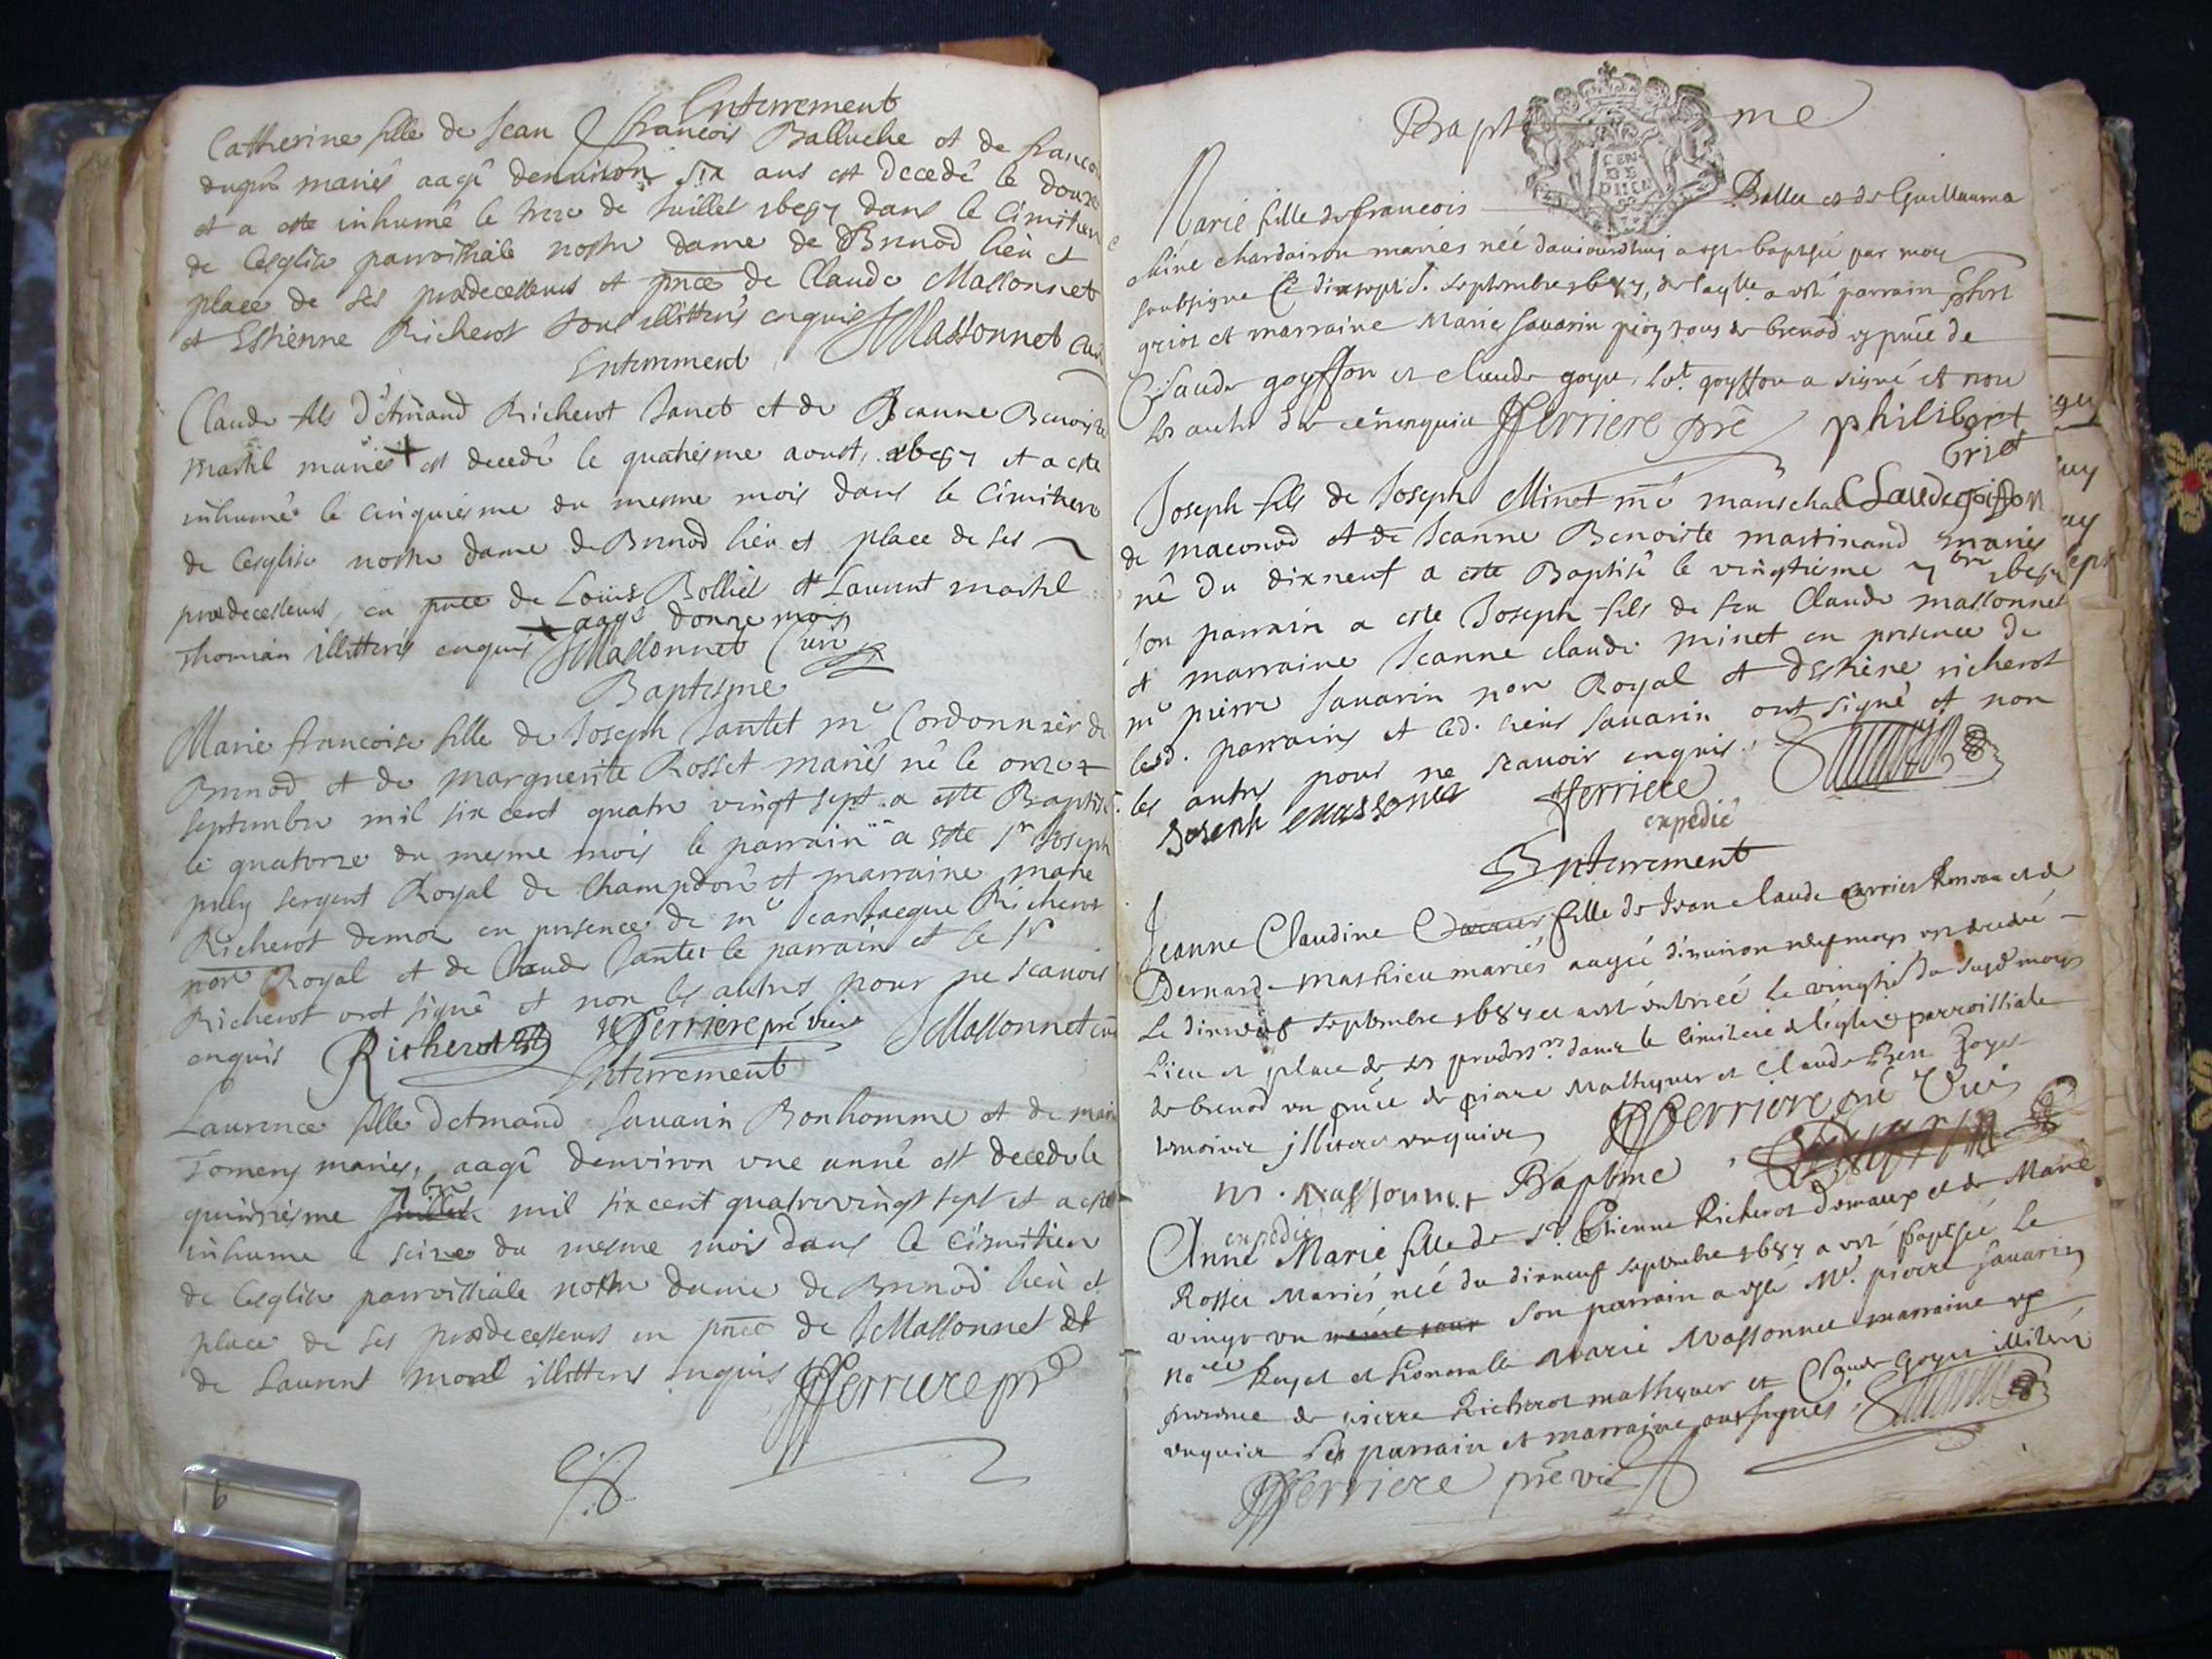 Enterrement
Catherine fille de Jean francois Balluche et de francoi
dupré mariés aagé denviron six ans est decedé le douze
et a este inhumé le treze de Juillet 1687 dans le Cimitiere
de lesglise parroissiale nostre dame de Brenod lieu et
place de ses prædecesseurs et pnce de Claude Massonnet
et Estienne Richerot tous illitterés enquis JMassonnet curé
Enterrement
Claude fils d'Armand Richerot Janet et de Jeanne Benoiste
martel mariés + est decedé le quatriesme aoust, 1687 et a este
inhumé le cinquiesme du mesme mois dans le Cimitiere
de lesglise nostre dame de Brenod lieu et place de ses
prædecesseurs, en pnce de Louis Bolliet et Laurent martel
+ aagé donze mois
Thomian illitterés enquis JMassonnet Curé
Baptesme
Marie francoise fille de Joseph Jantet me Cordonnier de
Brenod et de marguerite Rosset mariés né le onze
septembre mil six cent quatre vingt sept a este Baptisé
le quatorze du mesme mois le parrain a este sr Joseph
puly sergent Royal de Champdor et marraine marie
Richerot demoz en presence de me Jeanjacque Richerot
nore Royal et de Claude Jantet le parrain et le sr
Richerot ont signé et non les autres pour ne scauoir
enquis Richerot Fferriere pré vicre JMassonnet curé
Enterrement
Laurence fille d'Armand Sauarin Bonhomme et de marie
Tomeny mariés, aagé denviron vne anné est decedé le
quinziesme 7bre mil six cent quatrevingt sept et a esté
inhumé le seize du mesme mois dans le Cimitiere
de lesglise parroissiale nostre dame de Brenod lieu et
place de ses prædecesseurs en pnce de JMassonnet et
de Laurent morel illitterés enquis Fferriere pr
Baptesme
CEN DE
Marie fille de francois Bollee et de Guillauma
chardairon mariés née daujourdhuy a esté baptisée par moy
soubsigné Ce dixsept septembre 1687, de laqlle a esté parrain phert
griot et marraine Marie Sauarin tous de brenod en pnce de
Claude goyffon et claude goyet, led. goyffon a signé et non
les autres de ce enquis Fferriere pre philibert
Griot
Joseph fils de Joseph Minet me mareschal Claude goiffon
de maconod et de Jeanne Benoiste martinand mariés
né du dixneuf a este Baptisé le vingtiesme 7bre 1687
son parrain a este Joseph fils de feu Claude massonnet
et marraine Jeanne claude minet en presence de
me pierre Sauarin nore Royal et d'Estiene richerot
lesd. parrains et led. sieur Sauarin ont signé et non
les autres pour ne scauoir enquis.
Joseph massonet Fferriere
expedié
Enterrement
Jeanne Claudine fille de Jean claude et de
Bernarde Mathieu mariés aagée d'enuiron neuf moys est decedée
le dixneuf septembre 1687 et a esté enterrée le vingtie du susd moys
lieu et place de ses predrs dans le Cimitiere de l'église parroissiale
de brenod en pnce de piarre Mathyuer et claude goyet
temoins illiterés enquis Fferriere pré Vicre
m. massonnet Baptéme
expedié
Anne Marie fille de sr. Etienne Richerot et de Marie
Rosset Mariés née du dixneuf septembre 1687 a esté baptisée le
vingt vn son parrain a esté Me. pierre Sauarin
Nore Royal et honorable Marie Massonnet marraine en
presence de pierre Richerot mathyuer et Claude Goyet illiterés
enquis les parrain et marraine ont signés
Fferriere pré vic